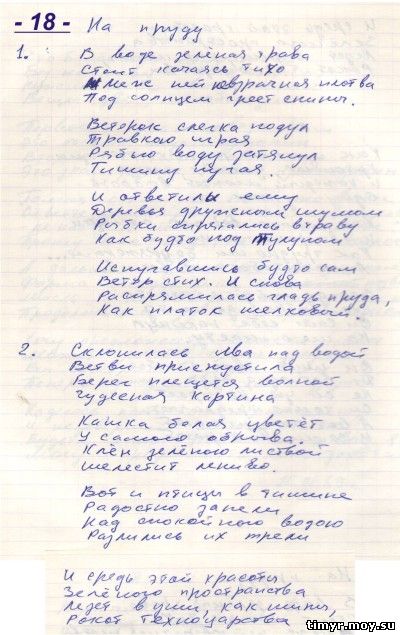 - 18 - На пруду
1. В воде зелёная трава
Стоит качаясь тихо
Меж ней невзрачная плотва
Под солнцем греет спины.
Ветерок слегка подул
Травкою играя
Рябью воду затянул
Тишину пугая.
И ответили ему
Деревья дружным шумом
Рыбки спрятались в траву
Как будто под тулупом
Испугавшись будто сам
Ветер стих. И снова
Распрямилась гладь пруда,
Как платок шелковый.
2. Склонилась ива над водой
Ветви приспустила
Берег плещется волной
Чудесная картина
Кашка белая цветёт
У самого обрыва.
Клён зелёною листвой
Шелестит лениво.
Вот и птицы в тишине
Радостно запели
Над спокойною водою
Разлились их трели
И средь этой красоты
Зелёного пространства
Лезет в уши, как шипы,
Рокот техноцарства
timyr.moy.su